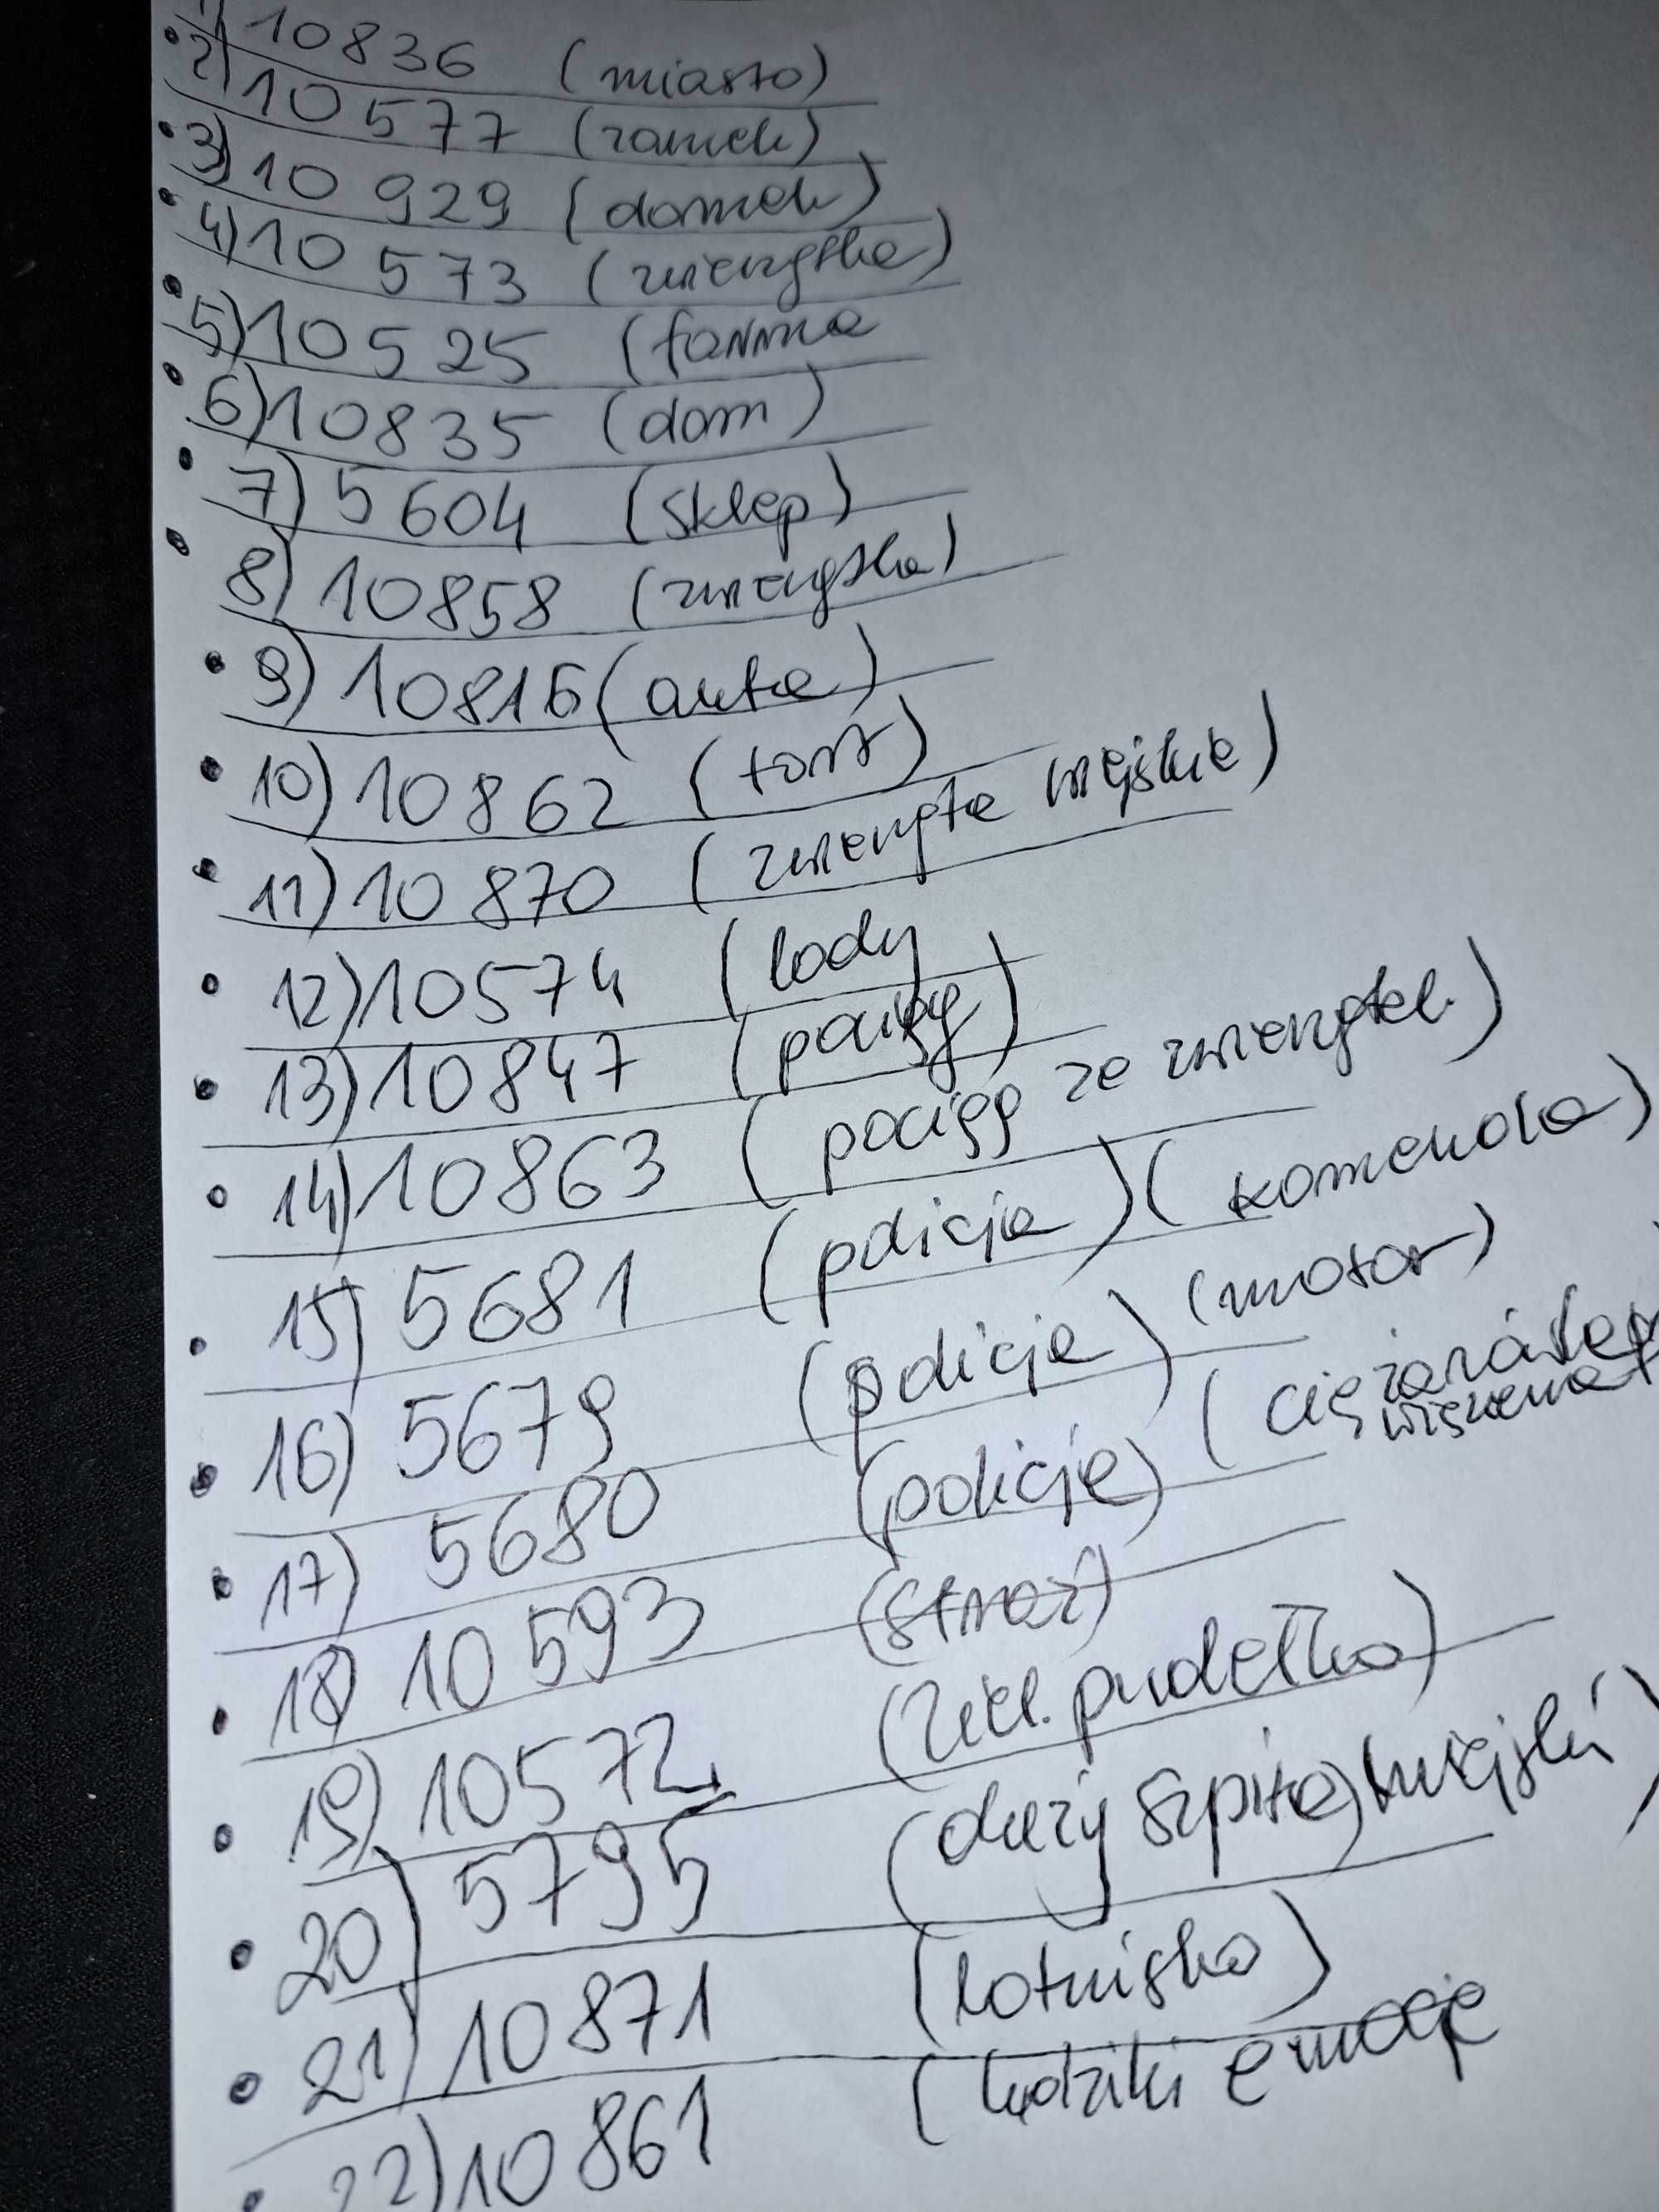 1) 10836 (miasto)
2) 10577 (zamek)
3) 10 929 (domek)
4) 10 573 (zwierzątka)
5) 10525 (farma
6) 10835 (dom)
7) 5604 (sklep)
8) 10858 (zwierzątka)
9) 10816 (auta)
10) 10862 (tort)
11) 10 870 (zwierzęta wiejskie)
12) 10574 (lody
13) 10847 (pociąg)
14) 10863 (pociąg ze zwierzętek)
15) 5681 (policja) (komenda)
16) 5679 (policja) (motor)
17) 5680 (policja) (ciężarówka
18) 10593 (straż)
19) 10572 (ziel. pudełko)
20) 5795 (duży szpital miejski)
21) 10871 (lotnisko)
22) 10861 (ludziki emocje